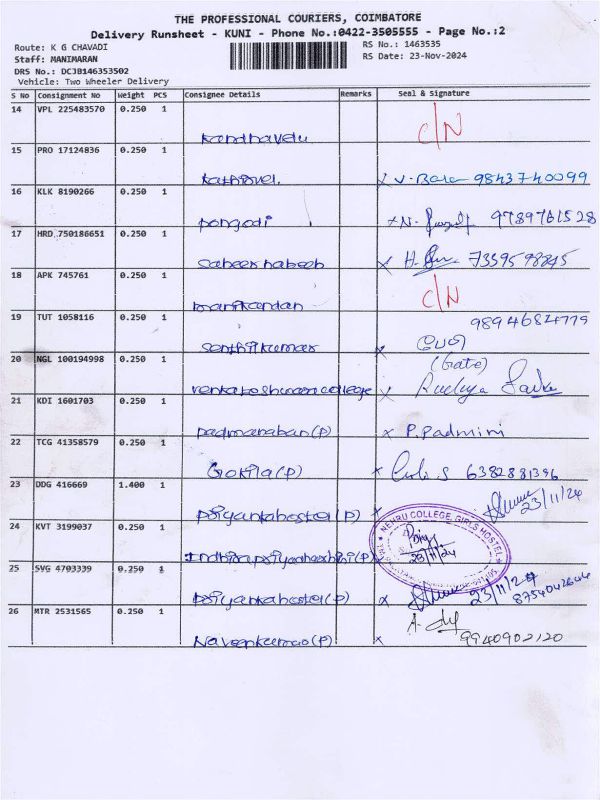 THE PROFESSIONAL COURIERS, COIMBATORE
Delivery Runsheet - KUNI - Phone No.:0422-3505555 - Page No.:2
Route: K G CHAVADI
RS No.: 1463535
Staff: MANIMARAN
RS Date: 23-Nov-2024
DRS No.: DCJB146353502
Vehicle: Two Wheeler Delivery
S No Consignment No Weight PCS Consignee Details Remarks Seal & Signature
14 VPL 225483570 0.250 1
kandhavelu C/N
15 PRO 17124836 0.250 1
kathirvel. x V. Bala 9843740099
16 KLK 8190266 0.250 1
pongodi x N. 9789761528
17 HRD 750186651 0.250 1
sabeer habeeb x H. 7339598845
18 APK 745761 0.250 1
manikandan C/N
19 TUT 1058116 0.250 1 9894684779
senthilkumar x
20 NGL 100194998 0.250 1 (Gate)
venkateshwara college x
21 KDI 1601703 0.250 1
padmanaban (P) x P. Padmini
22 TCG 41358579 0.250 1
Gokila (P) x 6382881396
23 DDG 416669 1.400 1
priyanka hostel (P) x 23/11/24
24 KVT 3199037 0.250 1
NEHRU COLLEGE GIRLS HOSTEL
23/11/24
25 SVG 4703339 0.250 1
priyanka hostel (P) x 23/11/24
26 MTR 2531565 0.250 1
Naveenkumar (P) x 9940902120